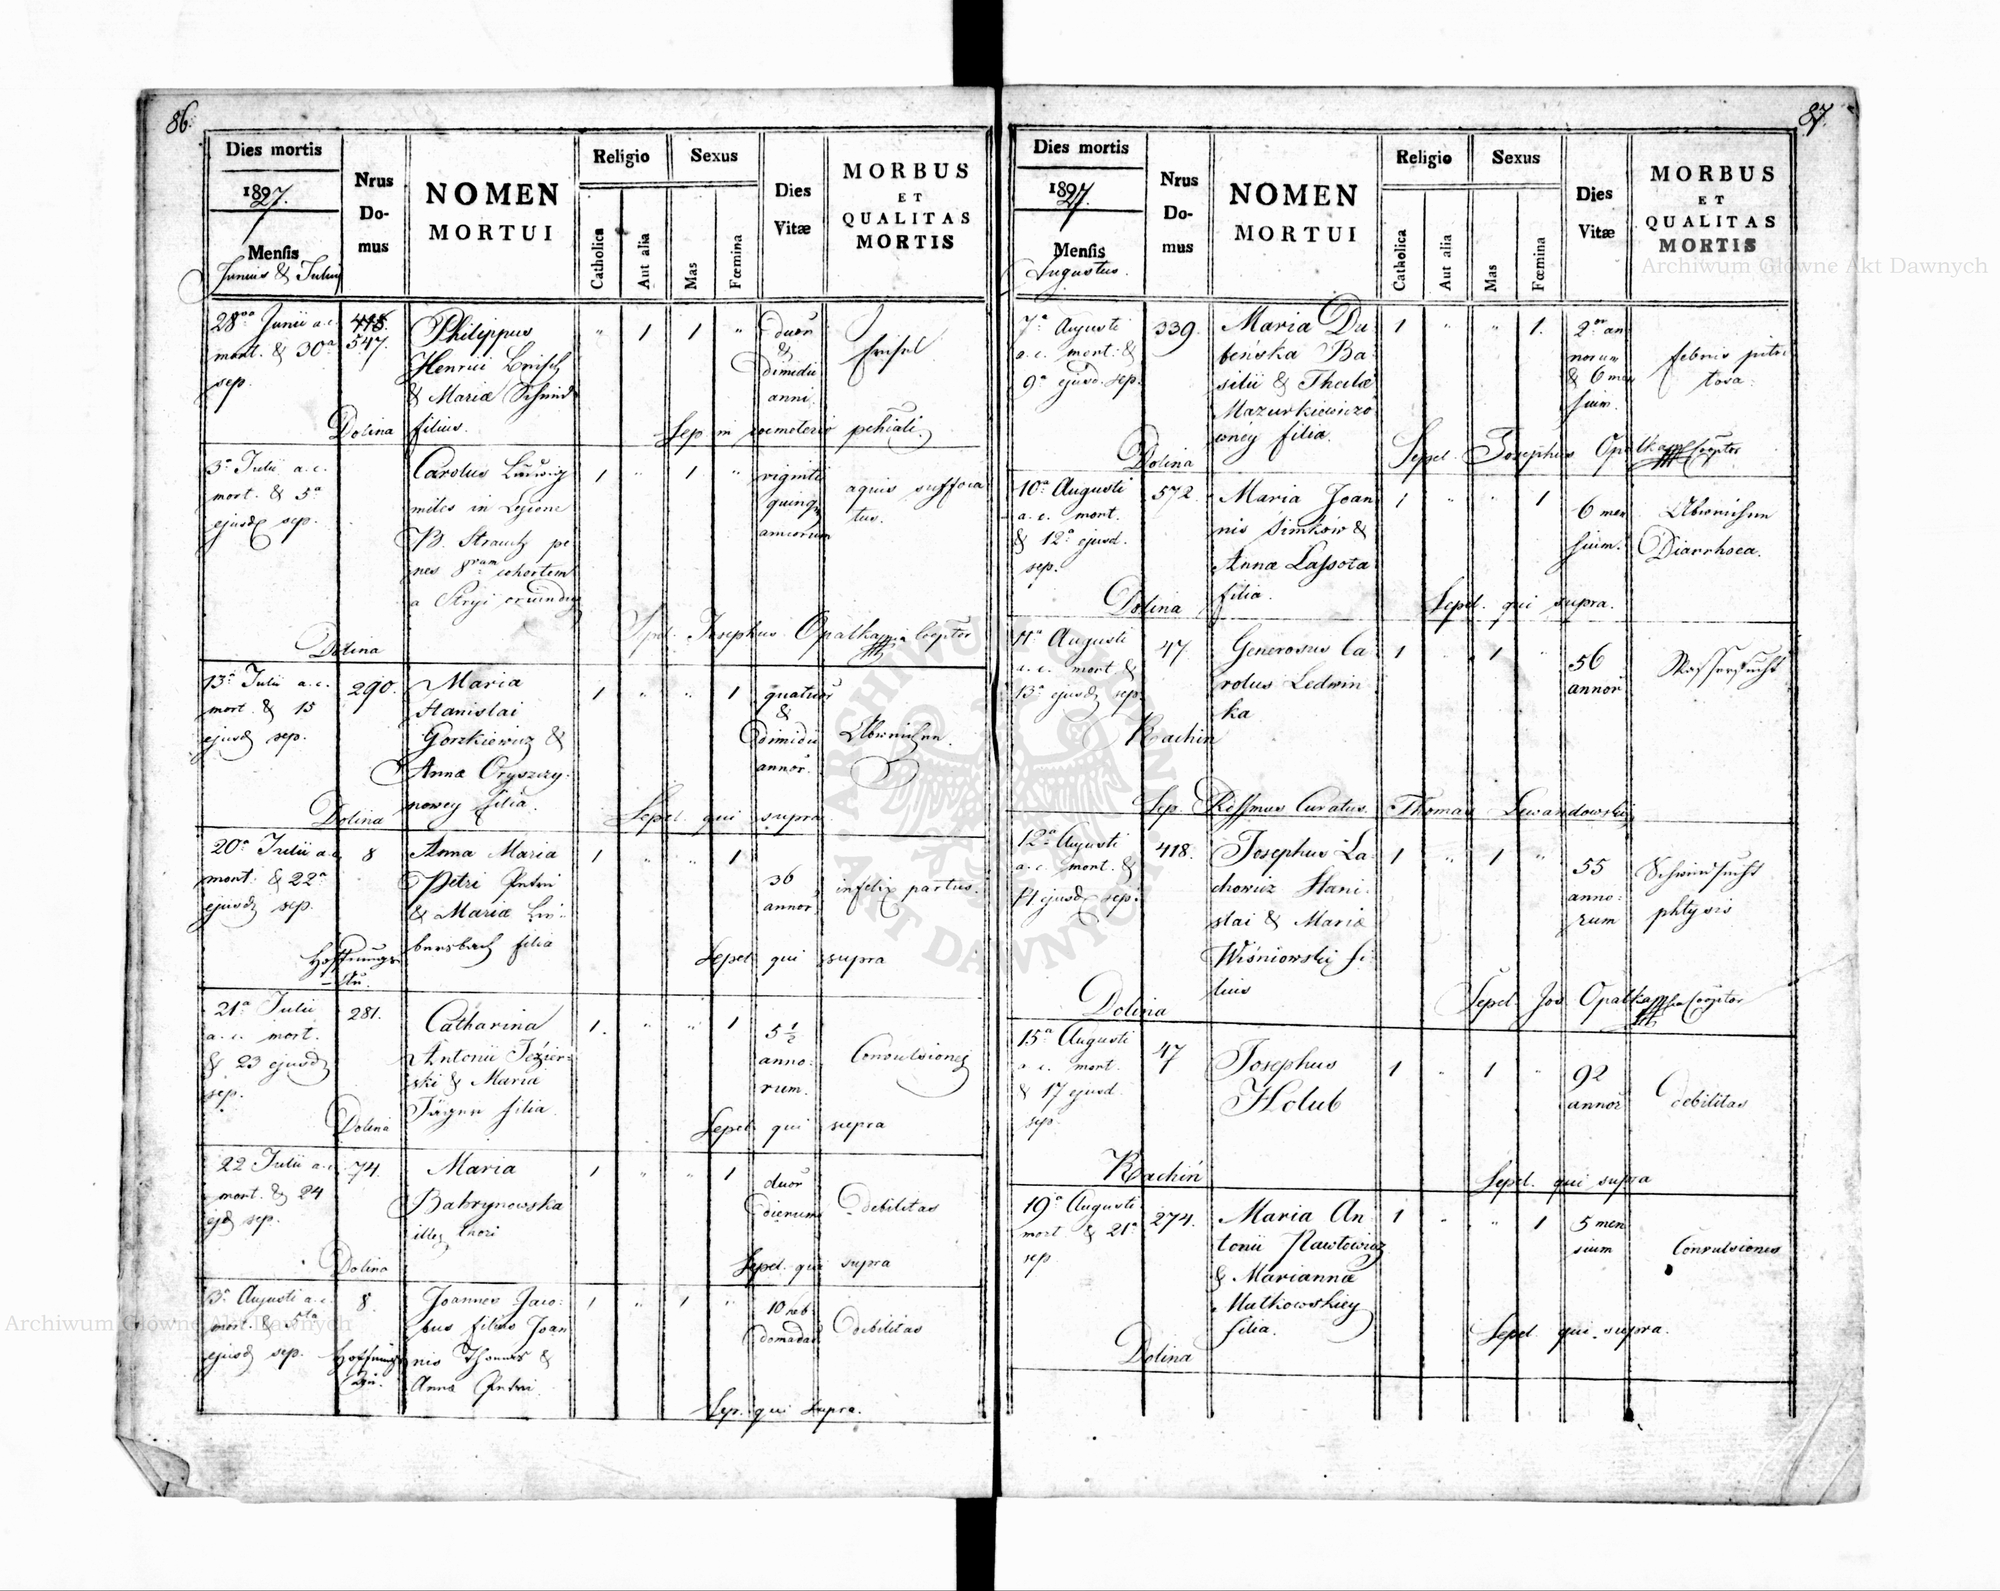 86.
Dies mortis
1827.
Mensis
Junius & Julius
Nrus
Do-
mus
NOMEN
MORTUI
Religio
Catholica
Aut alia
Sexus
Mas
Fœmina
Dies
Vitæ
MORBUS
ET
QUALITAS
MORTIS
28 Junii a.c.
mort. & 30a
sep.
547.
Dolina
Philippus
Henrici
& Mariæ
filius.
" 1 1 "
duor
&
dimidii
anni.
Sep. in coemeterio
3a Julii a.c.
mort. & 5a
ejusd sep.
Dolina
Carolus Ludwig
miles in Legione
B. Strauch pe
nes 8vam cohortem
a Stryi
1 " 1 "
viginti
quinq
annorum
aquis suffoca
tus.
Sepel. Josephus Opalka Cooptor
13a Julii a.c.
mort. & 15
ejusd sep.
290.
Dolina
Maria
Stanislai
Gorzkiewicz &
Anna Oryszczy-
nowey filia.
1 " " 1
quatuor
&
dimidii
annor.
Abweichen.
Sepel. qui supra
20a Julii a.c.
mort. & 22a
ejusd sep.
8
Hoffnungs
-au.
Anna Maria
Petri
& Mariæ
filia
1 " " 1
36
annor
infelix partus.
Sepel qui supra
21a Julii
a.c. mort.
& 23 ejusd
sep.
281.
Dolina
Catharina
Antonii Jezier-
ski & Maria
Jäger filia.
1. " " 1
5 1/2
anno-
rum.
Convulsiones
Sepel qui supra
22 Julii a.c.
mort. & 24
ejd sep.
74.
Dolina
Maria
Babrynowska
illeg thori
1 " " 1
duor
dierum
debilitas
Sepel. qui supra
3a Augusti a.c.
mort. & 5ta
ejusd sep.
8.
Hoffnungs
au.
Joannes Jaco-
bus filius Joan
nis Thomas &
Anna
1 " 1 "
10 heb
domadar
debilitas
Sep. qui supra.
87.
Dies mortis
1827.
Mensis
Augustus.
Nrus
Do-
mus
NOMEN
MORTUI
Religio
Catholica
Aut alia
Sexus
Mas
Fœmina
Dies
Vitæ
MORBUS
ET
QUALITAS
MORTIS
7a Augusti
a.c. mort. &
9a ejusd. sep.
339.
Dolina
Maria Du-
beńska Ba-
silii & Theclæ
Mazurkiewiczo
wney filia.
1 " " 1.
2or an
norum
& 6 men
sium.
febris
Sepel. Josephus Opalka Cooptor
10a Augusti
a.c. mort.
& 12a ejusd.
sep.
572.
Dolina
Maria Joan
nis Simków &
Anna Lassota
filia.
1 " " 1
6 men
sium.
Abweichen
Diarrhoea.
Sepel. qui supra.
11a Augusti
a.c. mort &
13a ejusd sep
47.
Rachin
Generosus Ca
rolus Ledwin
ka
1 " 1 "
56
annor
Wassersucht
Sep. Curatus Thomas Lewandowski
12a Augusti
a.c. mort. &
14 ejusd sep.
418.
Dolina
Josephus La-
chowicz Stani-
slai & Mariæ
Wiśniowski fi-
lius
1 " 1 "
55
anno-
rum
Schwindsucht
phtysis
Sepel. Jos Opalka Cooptor
15a Augusti
a.c. mort.
& 17 ejusd.
sep.
47
Rachin
Josephus
Holub
1 " 1 "
92
annor
debilitas
Sepel. qui supra
19a Augusti
mort. & 21a
sep
274.
Dolina
Maria An
tonii Pawlowicz
& Mariannæ
Mulkowskiey
filia.
1 " " 1
5 men
sium
Convulsiones
Sepel qui supra.
Archiwum Główne Akt Dawnych
Archiwum Główne Akt Dawnych